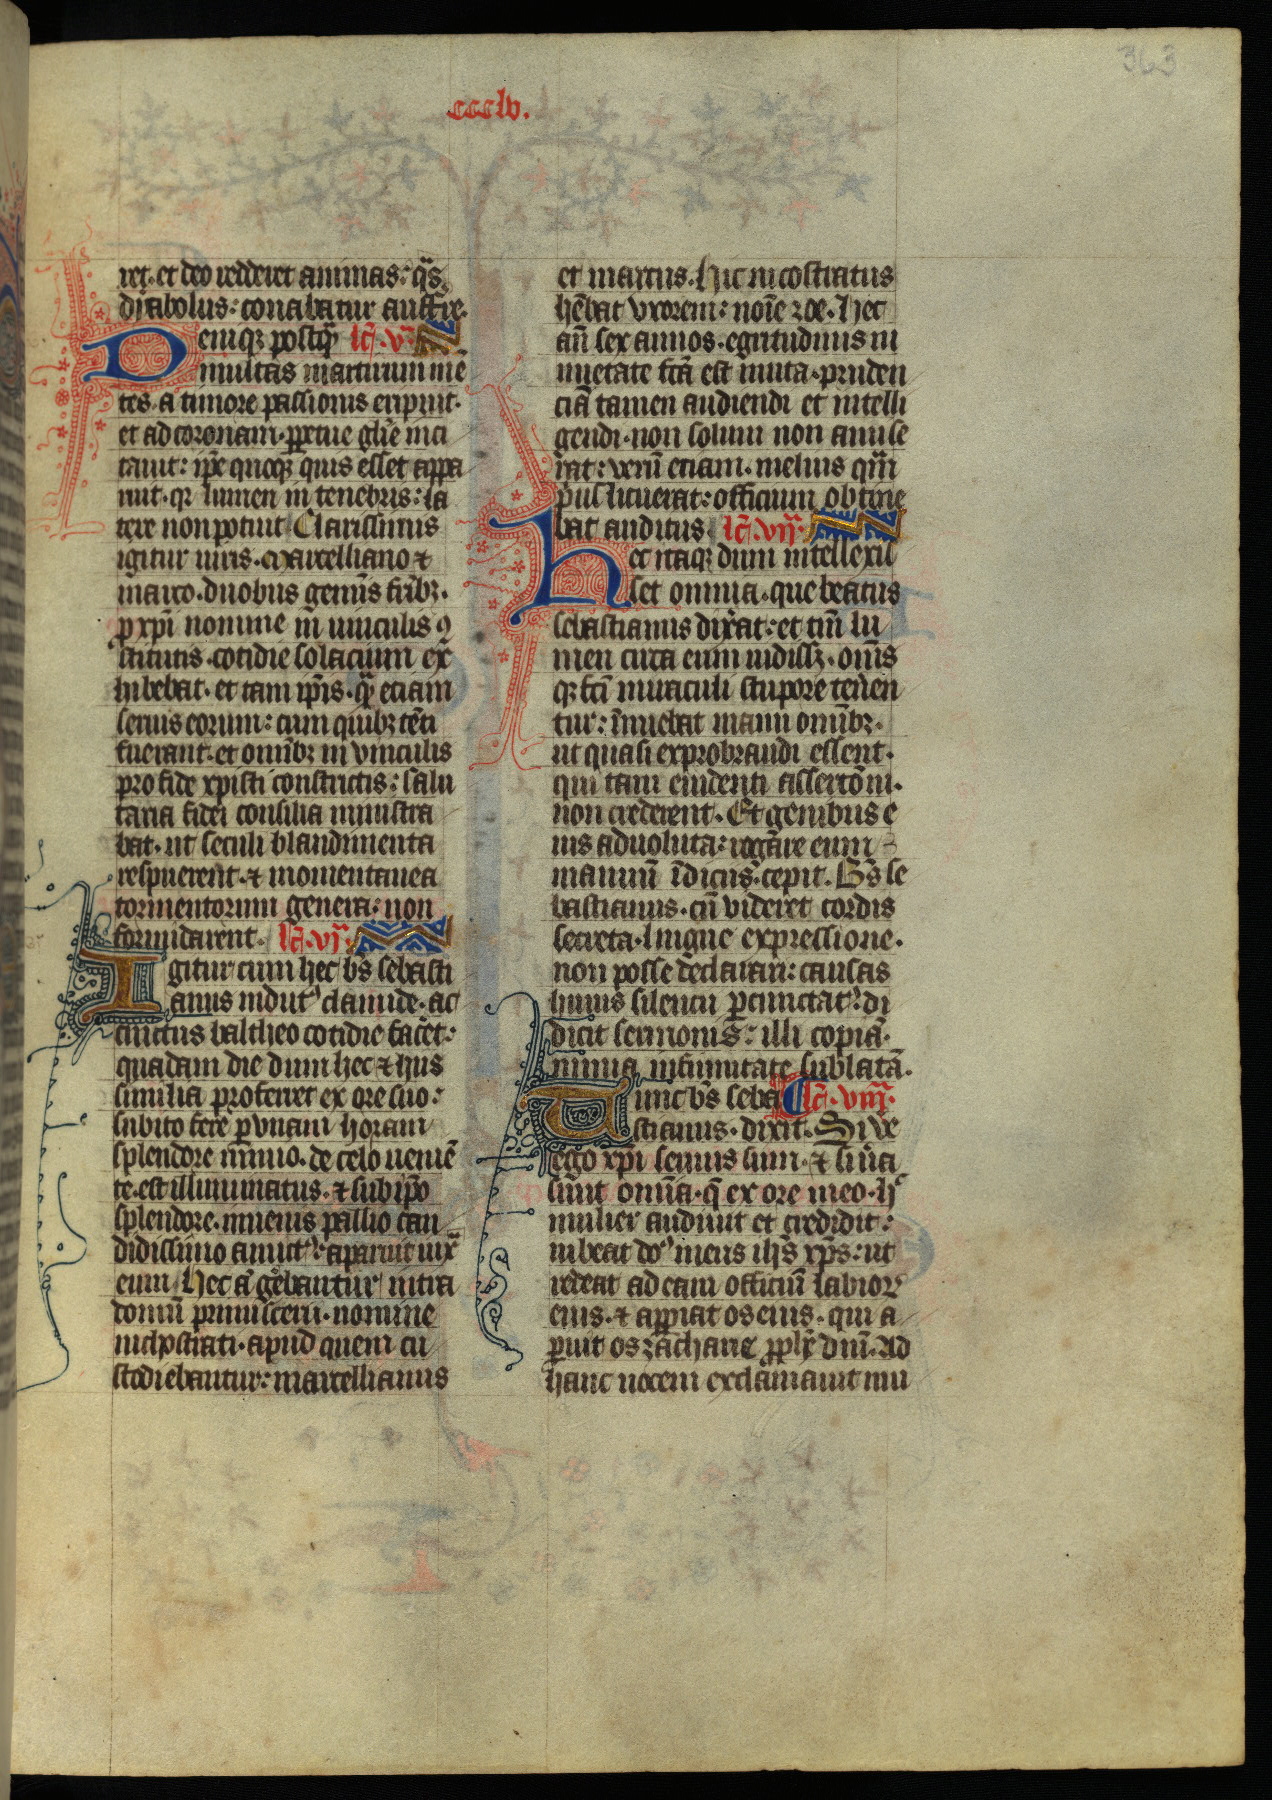 363
ccclv.
ret. et deo redderet animas: q̃s
dyabolus: conabatur auffre.
Deniqȝ postq̃ȝ lc̃. v.
multas martirum mẽ
tes. a timore passionis eripuit.
et ad coronam. ꝑpetue gl̃ie inci
tauit: ip̃e quoqȝ quis esset appa
ruit. qr lumen in tenebris: la
tere non potuit Clarissimis
igitur uiris. marcelliano ⁊
marco. duobus gem̃is fr̃ibȝ.
ꝓ xp̃i nomine in uinculis ꝯ
stitutis. cotidie solacium ex
hibebat. et tam ip̃is. q̃ȝ etiam
seruis eorum: cum quibȝ tẽti
fuerant. et omĩbȝ in vinculis
pro fide xpisti constrictis: salu
taria fidei consilia ministra
bat. ut seculi blandimenta
respuerent. ⁊ momentanea
tormentorum genera: non
formidarent. lc̃. vi.
Igitur cum hec b̃s sebasti
anus indut⁹ clamide. ac
cinctus baltheo cotidie facẽt:
quadam die dum hec ⁊ hiis
similia proferret ex ore suo:
subito fere ꝑ vnam horam
splendore nimio. de celo ueniẽ
te. est illuminatus. ⁊ sub ip̃o
splendore. niueus pallio can
didissimo amict⁹: aparuit iux̃
eum Hec aũ gebantur intra
domũ primiscerii. nomine
nichostrati. apud quem cu
stodiebantur: marcellianus
et marcus. Hic nicostratus
hẽbat vxorem: noĩe zoe. Hec
añ sex annos. egritudinis ni
mietate fc̃a est muta. pruden
ciã tamen audiendi et intelli
gendi. non solum non amise
rat: verũ etiam. melius qm̃
pus lituerat: officium obtine
bat auditus lc̃. vii.
Hec itaqȝ dum intellexis
set omnia. que beatus
sebastianus dixat: et tm̃ lu
men circa eum uidissȝ. om̃s
qȝ tc̃i miraculi stupore tenen
tur: ĩnuebat manu omĩbȝ.
ut quasi exprobrandi essent.
qui tam euidenti assertõni.
non crederent. Et genibus e
ius aduoluta: rogare eum
manuũ ĩdiciis cepit. B̃s se
bastianus. cũ videret cordis
secreta. lingue expressione.
non posse declarari: causas
huius silencii ꝑcunctat⁹. di
dicit sermonis: illi copiã.
nimia infirmitate sublatã.
Tunc b̃s seba lc̃. viii.
stianus. dixit. Si ve
re ego xp̃i seruus sum. ⁊ si ũa
sunt om̃ia. q̃ ex ore meo. h̃
mulier audiuit et credidit:
iubeat do⁹ meus ih̃s xp̃s: ut
redeat ad eam officiũ labioꝝ
eius. ⁊ apperiat os eius. qui a
ꝑuit os zacharie ꝓph̃e dn̄i. Ad
hanc uocem exclamauit mu